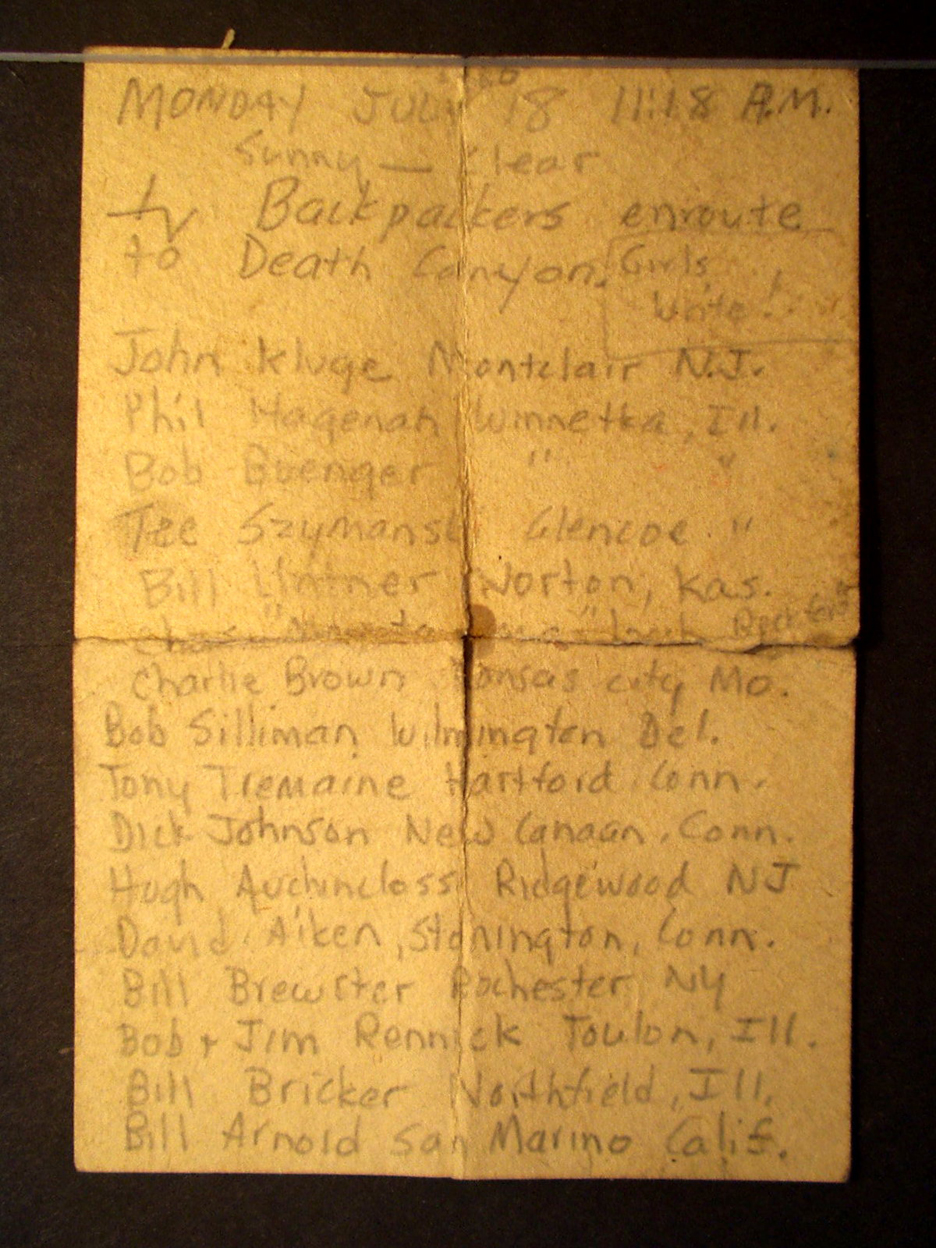 MONDAY JULY 18 11:18 A.M.
Sunny — Clear
Backpackers enroute
to Death Canyon.
Girls
Write!
John Kluge Montclair N.J.
Phil Hagenah Winnetka, Ill.
Bob Buenger " "
Tee Szymanski Glencoe "
Bill Lintner Norton, Kas.
Chas.
Charlie Brown Kansas City Mo.
Bob Silliman Wilmington Del.
Tony Tremaine Hartford Conn.
Dick Johnson New Canaan, Conn.
Hugh Auchincloss Ridgewood NJ
David Aiken, Stonington, Conn.
Bill Brewster Rochester NY
Bob + Jim Rennick Toulon, Ill.
Bill Bricker Northfield, Ill.
Bill Arnold San Marino Calif.